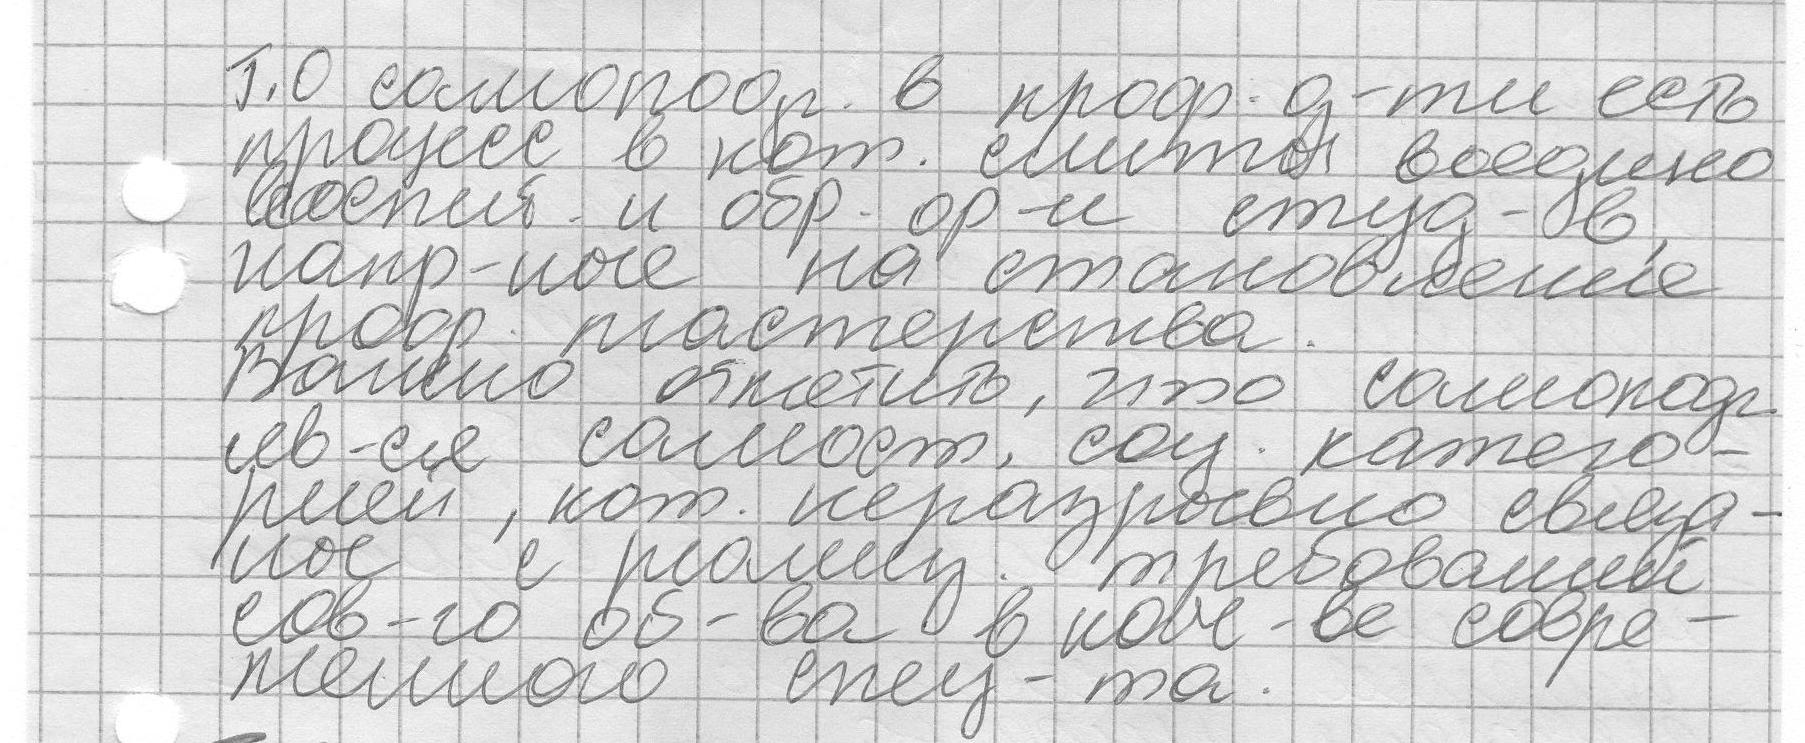 Т.О самоподг. в проф. д-ти есть
процесс в кот. слиты воедино
воспит. и обр. ор-и студ-ов,
напр-ные на становление
проф. мастерства.
Важно отметить, что самоподг
яв-ся самост. соц. катего-
рией, кот. неразрывно связа-
ное с реализ. требований
сов-го об-ва в кач-ве совре-
менного спец-та.